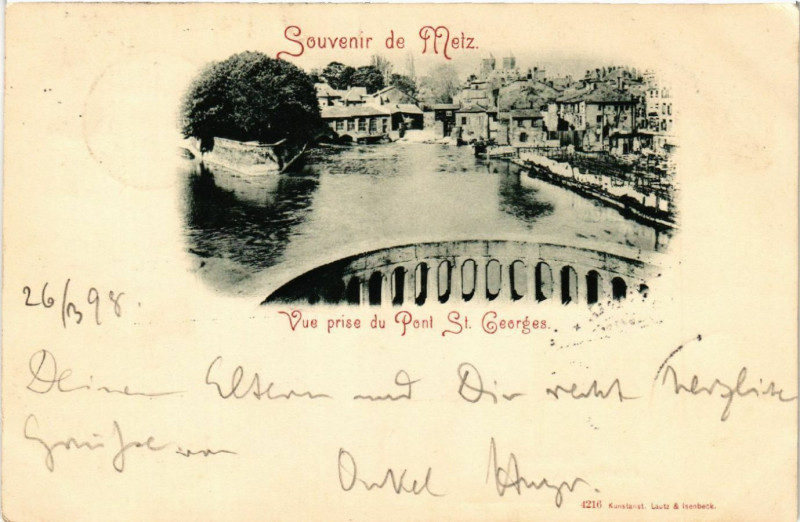 Souvenir de Metz.
26/3 98.
Vue prise du Pont St. Georges.
Deinen Eltern und Dir recht herzliche
Grüße von
Onkel Hugo.
4216 Kunstanst. Lautz & Isenbeck.